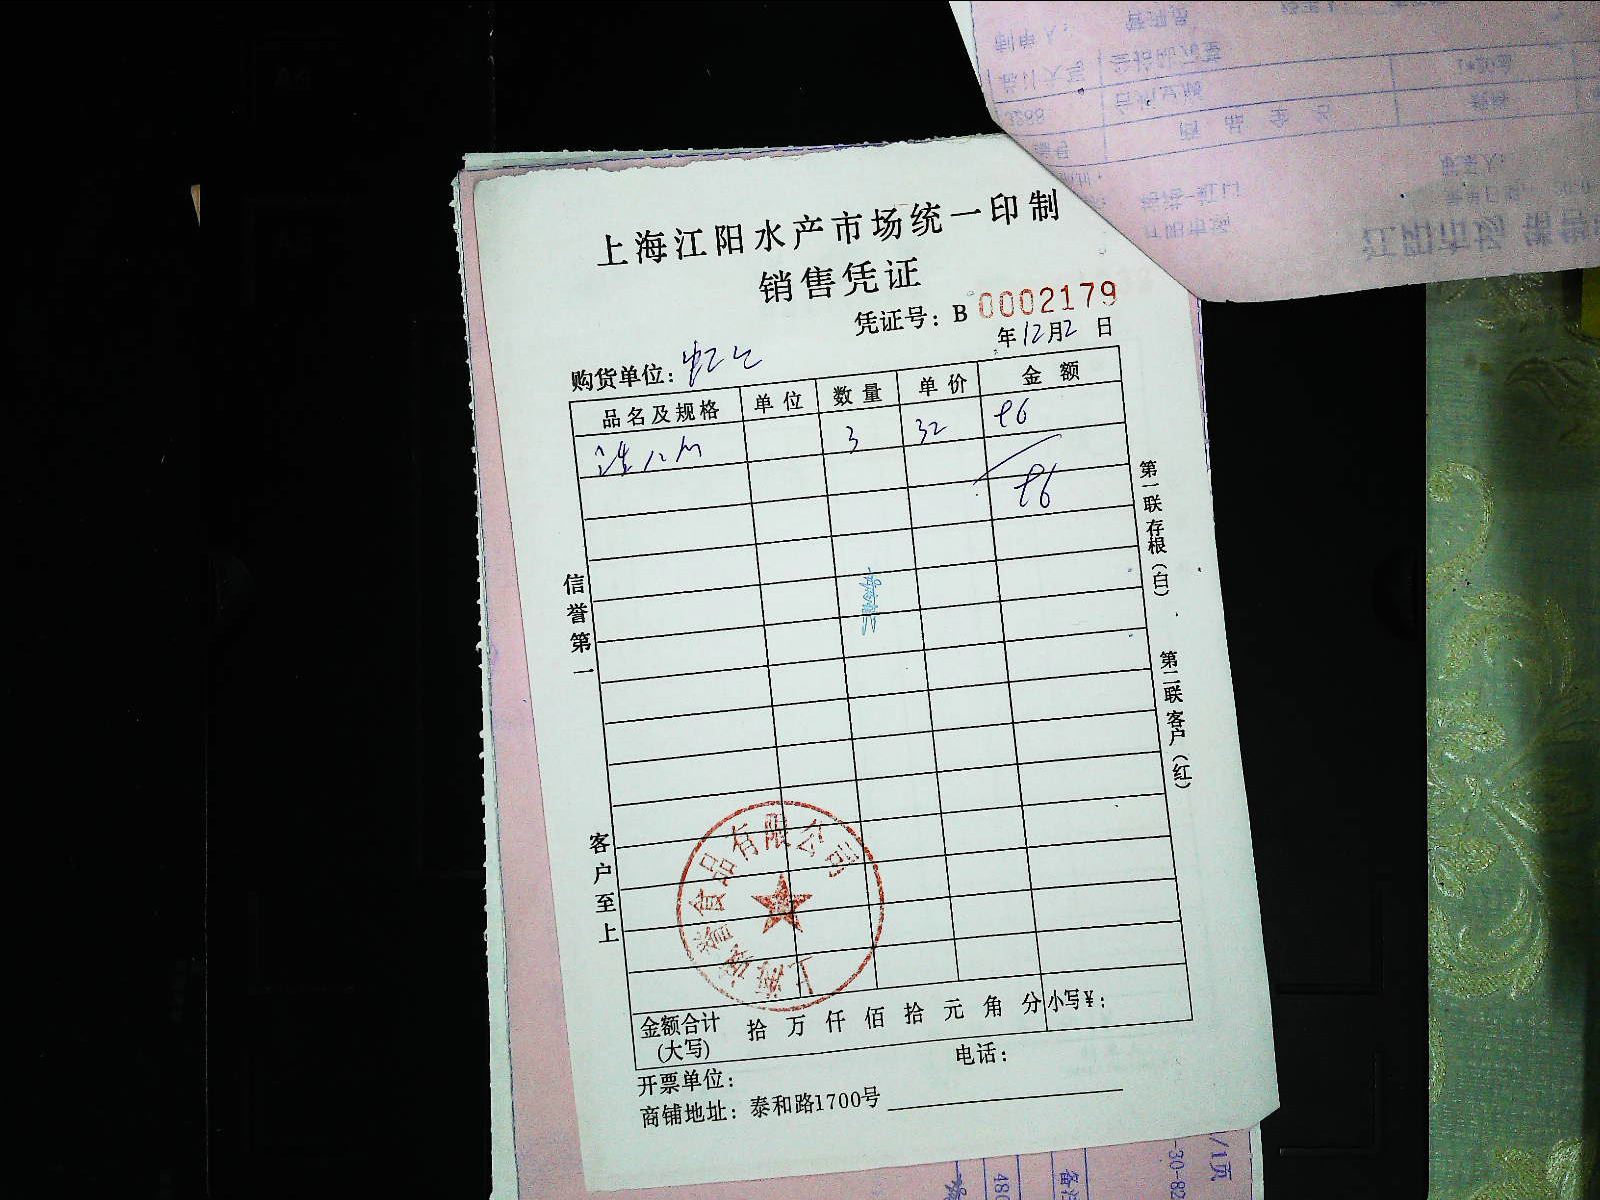 上海江阳水产市场统一印制
销售凭证
凭证号：B 0002179
年12月2日
购货单位：虹口
品名及规格 单位 数量 单价 金额
3 32 96
96
信誉第一
客户至上
第一联存根（白）
第二联客户（红）
上海诚誉食品有限公司
金额合计(大写) 拾万仟佰拾元角分 小写¥：
开票单位： 电话：
商铺地址：泰和路1700号
江阳市场
商品全名
3268
/1页
-30-82
480
备注